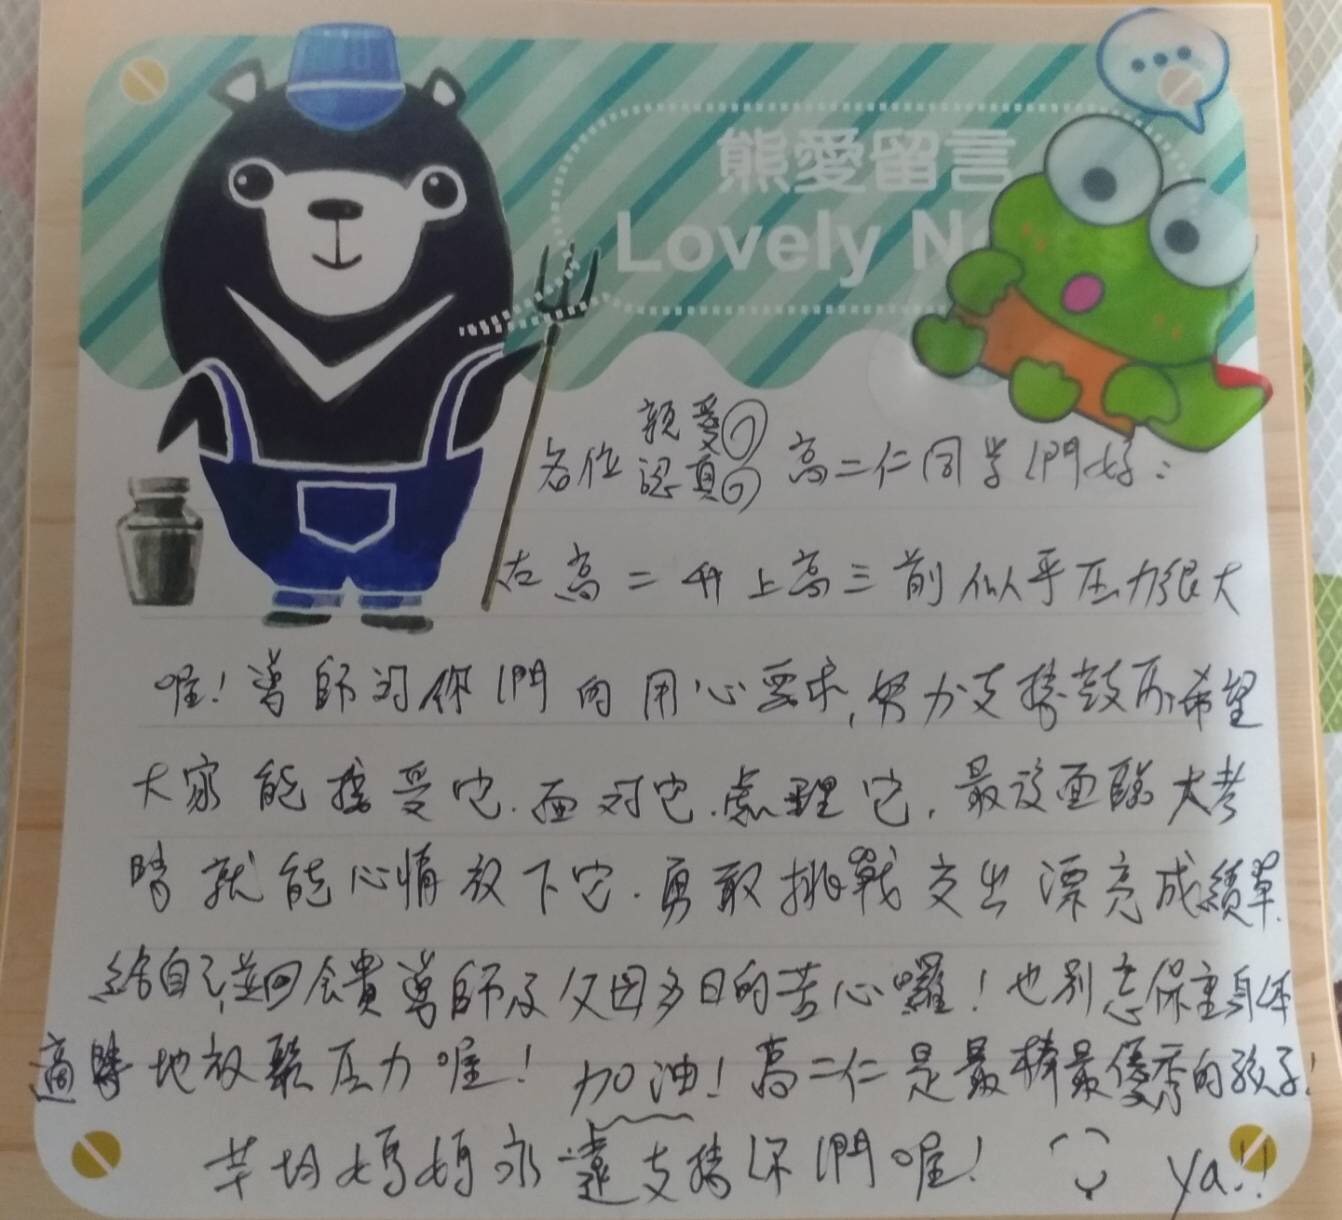 熊愛留言
Lovely N
親愛の
各位認真の高二仁同学們好：
在高二升上高三前似乎压力很大
喔！導師对你們的用心要求,努力支持鼓励希望
大家能接受它.面对它.處理它,最後面臨大考
時就能心情放下它.勇敢挑戰交出漂亮成績單
給自己,並回會貴導師及父母多日的苦心囉！也別忘保重身体
適時地放鬆压力喔！加油！高二仁是最棒最優秀的孩子！
芊均媽媽永遠支持你們喔！ ya!!